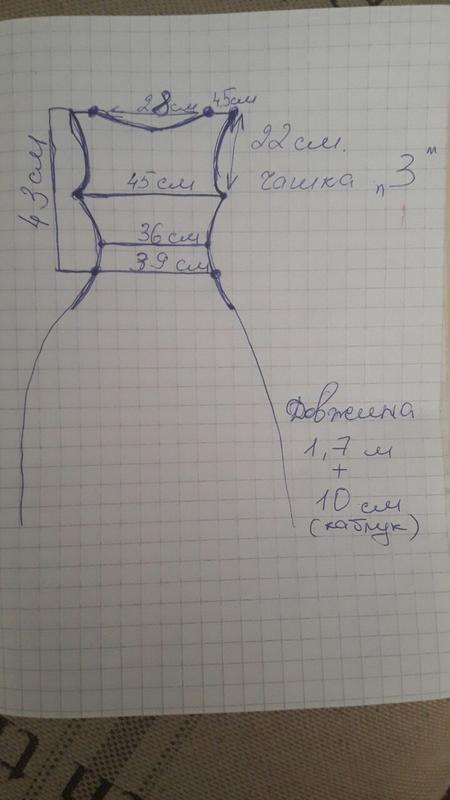 28см
4,5см
43см
22см.
чашка „3"
45см
36см
39см
Довжина
1,7 м
+
10 см
(каблук)